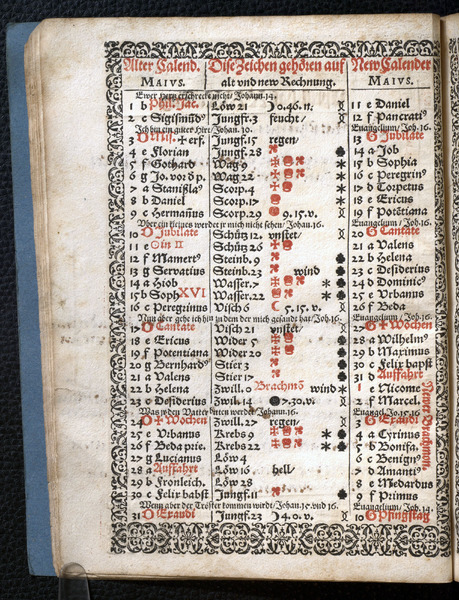 Alter Calend. Dise Zeichen gehören auff New Calender
MAIVS. alt vnd new Rechnung. MAIVS.
Ewer hertz erschrecke nicht / Johann. 14.
1 b Phil. Jac. Löw 21 0.46.n. 11 e Daniel
2 c Sigismũd Jungf. 3 feucht / 12 f Pancrati
Ich bin ein guter Hirt / Johan. 10. Euangelium / Joh. 16.
3 Mis. + erf. Jungf. 15 regen / 13 G Jubilate
4 e Florian Jungf. 28 14 a Job
5 f Gothard Wag 9 15 b Sophia
6 g Jo. vor d p. Wag 22 16 c Peregrin
7 a Stanißla Scorp. 4 17 d Torpetus
8 b Daniel Scorp. 17 18 e Ericus
9 c Hermañus Scorp. 29 9.15.v. 19 f Potẽtiana
Vber ein kleines werdet jr mich nicht sehen / Johan. 16. Euangelium / Joh. 16.
10 Jubilate Schütz 12. vnstet / 20 G Cantate
11 e in II Schütz 26 21 a Valens
12 f Mamert Steinb. 9 22 b Helena
13 g Seruatius Steinb. 23 wind 23 c Desiderius
14 a Hiob Wasser. 7 24 d Dominic
15 b Soph XVI Wasser. 22 25 e Vrbanus
16 c Peregrinus Visch 6 5.15.v. 26 f Beda
Nun aber gehe ich hin zu dem der mich gesandt hat / Joh. 16. Euangelium / Joh. 16.
17 Cantate Visch 21 vnstet / 27 G + Wochen
18 e Ericus Wider 5 28 a Wilhelm
19 f Potentiana Wider 20 29 b Maximus
20 g Bernhard Stier 3 30 c Felix babst
21 a Valens Stier 17 31 d Auffahrt
22 b Helena Zwill. 0 Brachmõ wind 1 e Nicome
23 c Desiderius Zwil. 14 7.30.v. 2 f Marcel.
Was jr den Vatter bitten werdet / Johann. 16. Euangel. Jo. 15. 16
24 + Wochen Zwill. 27 regen / 3 G Exaudi
25 e Vrbanus Krebs 9 4 a Cyrinus
26 f Beda prie. Krebs 22 5 b Bonifa.
27 g Lucianus Löw 4 6 c Benign
28 a Auffahrt Löw 16 hell / 7 d Amanti
29 b Fronleich. Löw 28 8 e Medardus
30 c Felix babst Jungf. 11 9 f Primus
Wenn aber der Tröster kommen wirdt / Johan. 15. vnd 16. Euangelium / Joh. 14.
31 Exaudi Jungf. 23 4.0.v. 10 G Pfingstag
Newer Brachmon.